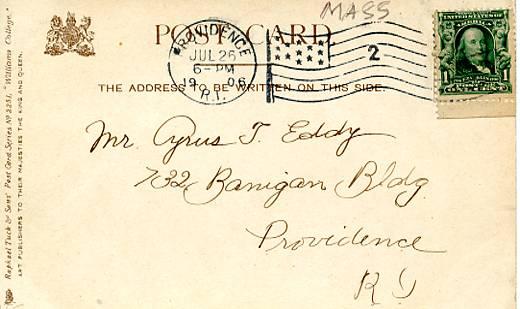 MASS
POST CARD
PROVIDENCE
JUL 26
6-PM
1906
R.I.
2
UNITED STATES OF AMERICA
1
THE ADDRESS TO BE WRITTEN ON THIS SIDE.
Mr. Cyrus T. Eddy
732 Banigan Bldg.
Providence
R I
Raphael Tuck & Sons' Post Card Series No 2251, "Williams College."
ART PUBLISHERS TO THEIR MAJESTIES THE KING AND QUEEN.